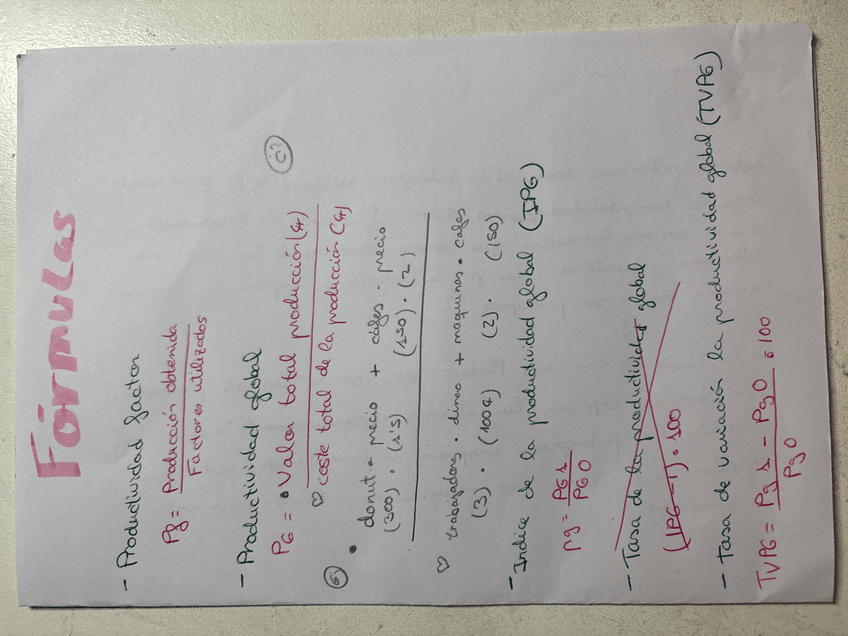 Fórmulas
- Productividad factor
Pf = Producción obtenida
Factores utilizados
- Productividad global
PG = • Valor total producción (€)
♡ coste total de la producción (€)
• donut • precio + cafes • precio
(300) • (1'5) (150) • (2)
♡ trabajadores • dinero + maquinas • cafes
(3) • (100€) (2) • (150)
- Indice de la productividad global (IPG)
pg = PG1
PG0
- Tasa de la productividad global
(IPG-1) • 100
- Tasa de variación la productividad global (TVPG)
TVPG = Pg1 - Pg0 • 100
Pg0